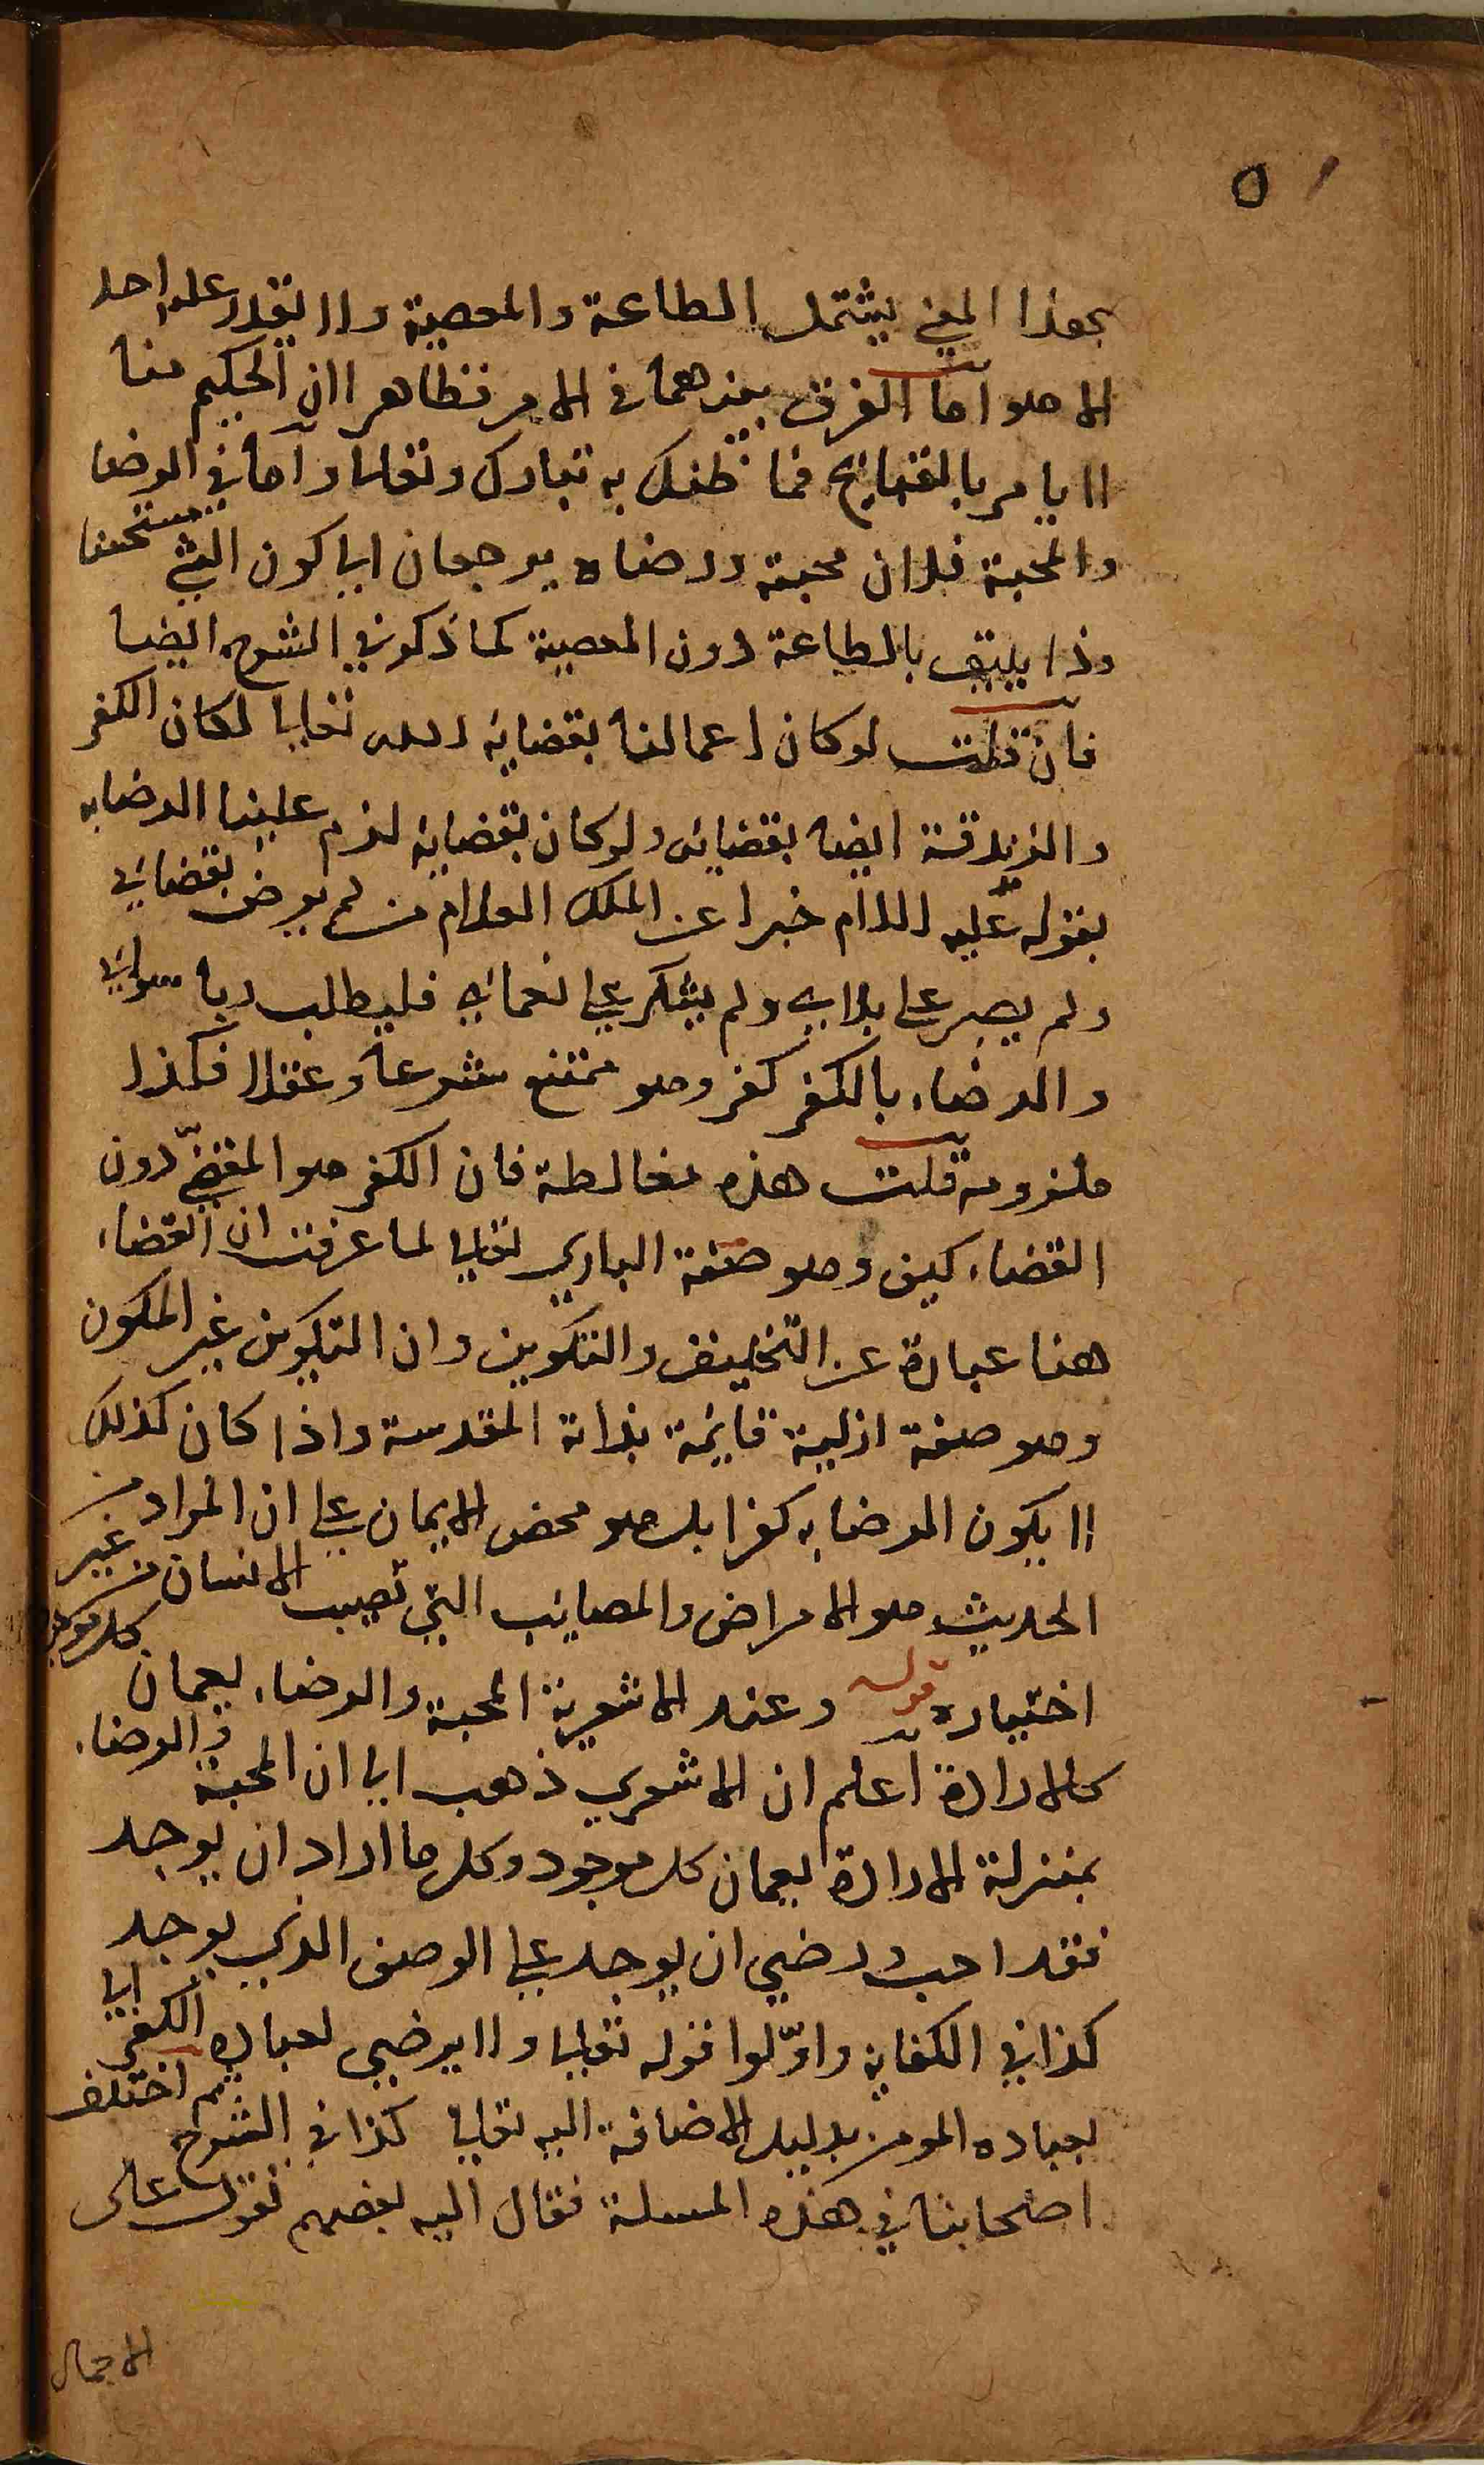 ٥
بهذا المعني يشتمل الطاعة والمعصية ولا يقدر عليه احد
الا هو اما الفرق بينهما في الامر فظاهر لان الحكيم منا
لا يامر بالقبايح فما ظنك به تبارك وتعالى واما في الرضا
والمحبة فلان محبة ورضاه يرجعان الي كون الشي مستحسنا
وذا يليق بالطاعة دون المعصية كما ذكر في الشرح ايضا
فان قلت لو كان اعمالنا بقضاية الله تعالي لكان الكفر
والزندقة ايضا بقضايه ولو كان بقضاية لزم علينا الرضا به
بقوله عليه السلام خبرا عن الملك العلام من لم يرض بقضائي
ولم يصبر علي بلايي ولم يشكر علي نعمائي فليطلب ربا سوائي
والرضاء بالكفر كفر وهو ممتنع شرعا وعقلا فكذا
ملزومه قلت هذه مغالطة فان الكفر هو المقضيّ دون
القضاء كيف وهو صفة الباري تعالي لما عرفت ان القضاء
هنا عبارة عن التخليق والتكوين وان التكوين غير المكون
وهو صفة ازلية قايمة بذاته المقدسة واذا كان كذلك
لا يكون الرضا به كفرا بل هو محض الايمان علي ان المراد من
الحديث هو الامراض والمصايب التي تصيب الانسان من غير
اختياره قوله وعند الاشعرية المحبة والرضاء يعمان كل موجود
كالارادة اعلم ان الاشعري ذهب الي ان المحبة والرضاء
بمنزلة الارادة يعمان كل موجود وكل ما اراد ان يوجد
فقد احب ورضي ان يوجد علي الوصف الذي يوجد
كذا في الكفاية واوّلوا قوله تعالي ولا يرضي لعباده الكفر اي
لعباده المومن بدليل الاضافة اليه تعالي كذا في الشرح ثم اختلف
اصحابنا في هذه المسلة فقال اليه بعضهم نقول على
الاجمال